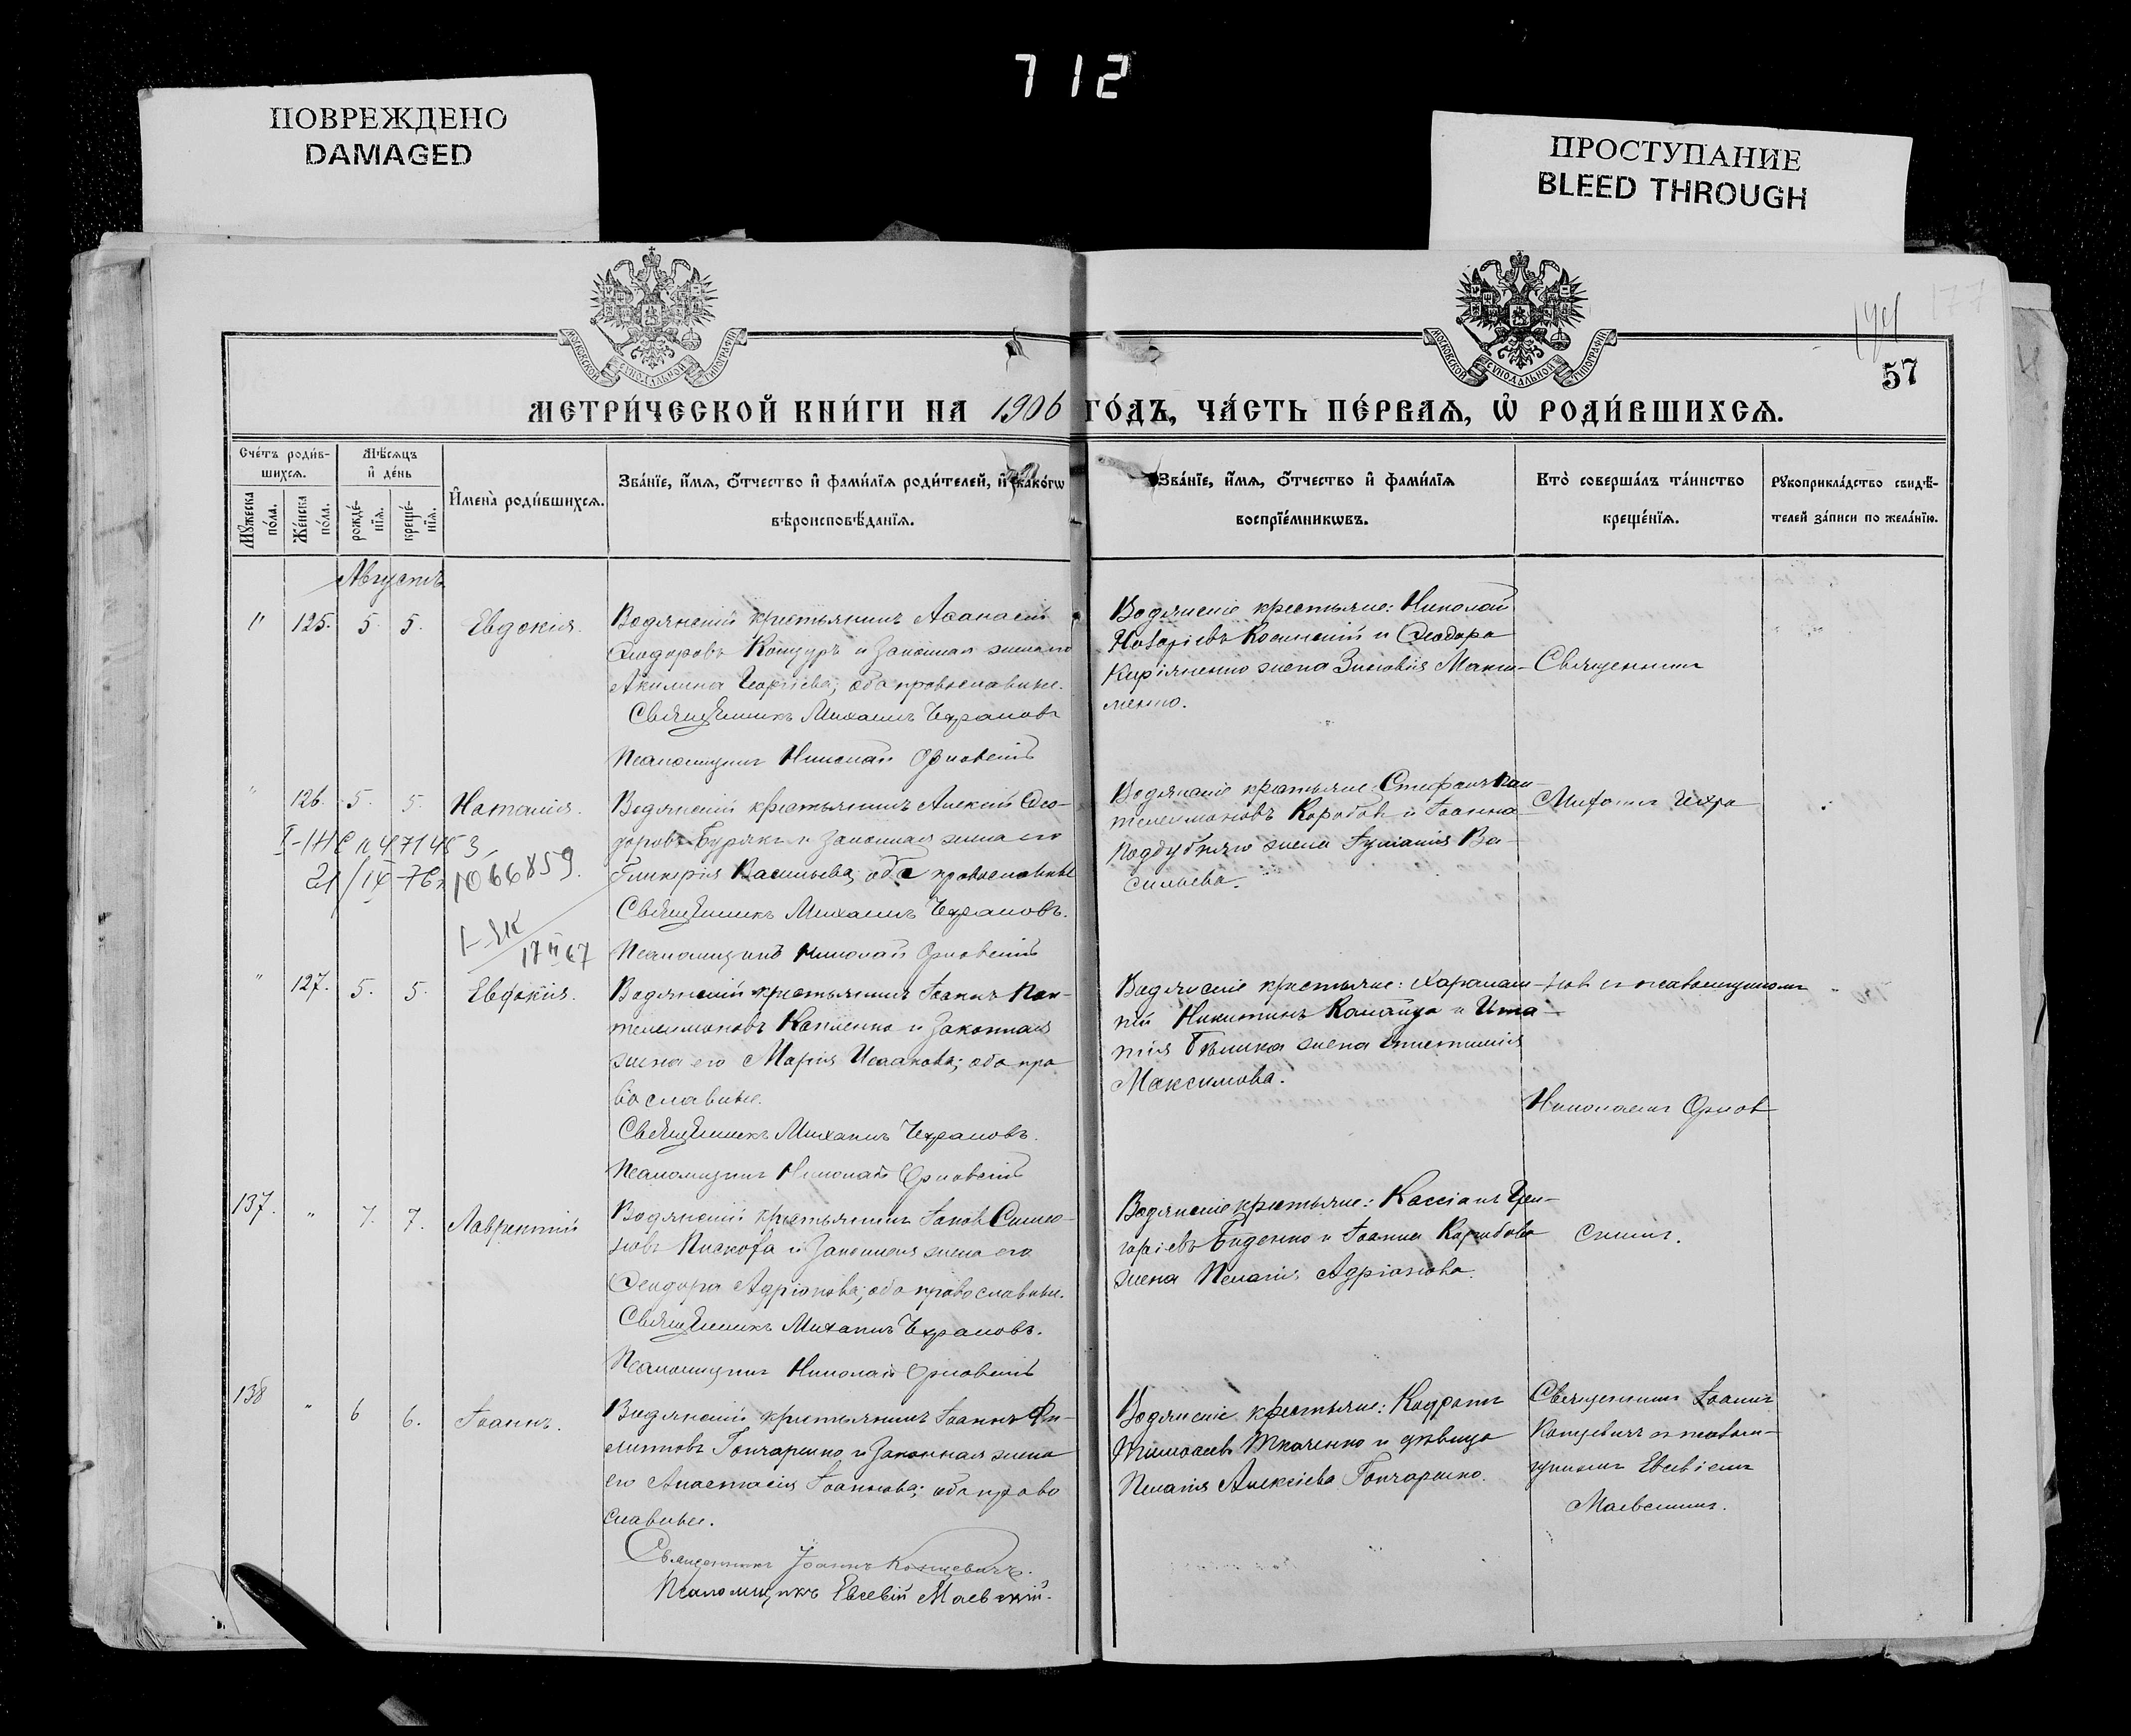 712
ПОВРЕЖДЕНО
DAMAGED
ПРОСТУПАНИЕ
BLEED THROUGH
МОСКОВСКОЙ СѴНОДАЛЬНОЙ ТИПОГРАФІИ
МОСКОВСКОЙ СѴНОДАЛЬНОЙ ТИПОГРАФІИ
57
МЕТРИ́ЧЕСКОЙ КНИ́ГИ НА 1906 ГО́ДЪ, ЧА́СТЬ ПЕ́РВАѦ, Ѡ҆ РОДИ́ВШИХСѦ.
Сче́тъ роди́в-
шихсѧ.
Мꙋ́жеска по́ла.
Же́нска по́ла.
Мѣ́сѧцъ
и҆ де́нь
рожде́-
нїѧ.
креще́-
нїѧ.
И҆мена̀ роди́вшихсѧ.
Зва́нїе, и҆́мѧ, ѻ҆́тчество и҆ фами́лїѧ роди́телей, и҆ како́гѡ
вѣроисповѣ́данїѧ.
Зва́нїе, и҆́мѧ, ѻ҆́тчество и҆ фами́лїѧ
воспрїе́мникѡвъ.
Кто̀ соверша́лъ та́инство
креще́нїѧ.
Рꙋкоприкла́дство свидѣ́-
телей за́писи по жела́нїю.
Августъ
" 125. 5. 5. Евдокія.
Водянскій крестьянинъ Аѳанасій
Ѳеодоровъ Концуръ и законная жена его
Акилина Георгіева; оба православные.
Священникъ Михаилъ Чехрановъ
Псаломщикъ Николай Орловскій
Водянскіе крестьяне: Николай
и Ѳеодора
жена Зиновія Макси-
менко.
Священникъ
" 126. 5. 5. Наталія.
Водянскій крестьянинъ Алексій Ѳео-
доровъ Бурякъ и законная жена его
Гликерія Васильева; оба православные
Священникъ Михаилъ Чехрановъ.
Псаломщикъ Николай Орловскій
471453
21/IX-76г 1066859.
17 II 67
Водянскіе крестьяне: Стефанъ Пан-
телеимоновъ Коробка и Іоанна
Поддубняго жена Іуліанія Ва-
сильева.
Михаилъ Чехра-
" 127. 5. 5. Евдокія.
Водянскій крестьянинъ Іоаннъ Пан-
телеимоновъ Капленко и законная
жена его Марія Исаакова; оба пра
вославные.
Священникъ Михаилъ Чехрановъ.
Псаломщикъ Николай Орловскій
Водянскіе крестьяне: Харалам-
пій Никитинъ и Игна-
тія Бѣлика жена
Максимова.
новъ съ псаломщикомъ
Николаемъ Орлов
137. " 7. 7. Лаврентій
Водянскій крестьянинъ Іаковъ Симео-
новъ Пискоха и законная жена его
Ѳеодора Адріанова; оба православные.
Священникъ Михаилъ Чехрановъ.
Псаломщикъ Николай Орловскій
Водянскіе крестьяне: Кассіанъ Гри-
горіевъ Биденко и Іоанна
жена Пелагія Адріанова.
скимъ.
138 " 6 6. Іоаннъ.
Водянскій крестьянинъ Іоаннъ Фи-
липповъ Гончаренко и законная жена
его Анастасія Іоаннова; оба право
славные.
Священникъ Іоаннъ Концевичъ.
Псаломщикъ Евсевій Маевскій.
Водянскіе крестьяне: Кодратъ
Тимоѳеевъ Ткаченко и дѣвица
Пелагія Алексіева Гончаренко.
Священникъ Іоаннъ
Концевичъ съ псалом-
щикомъ Евсевіемъ
Маевскимъ.